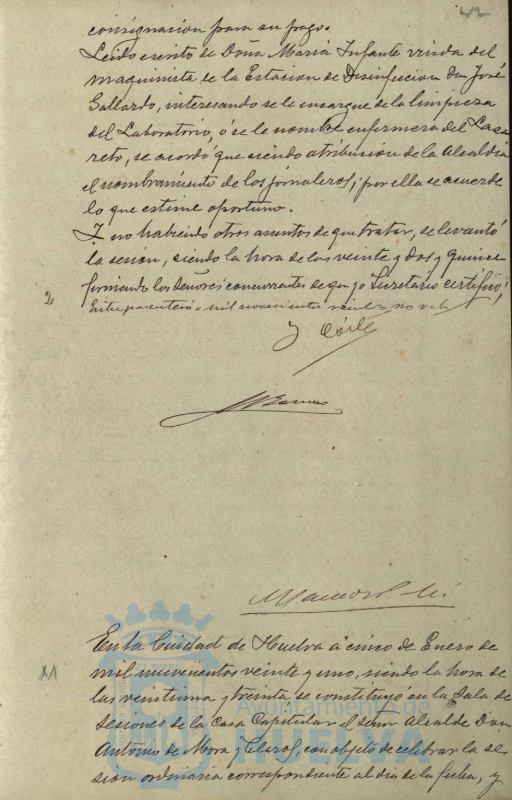 42
consignacion para su pago.
Leido escrito de Doña Maria Infante viuda del
maquinista de la Estacion de Desinfeccion Don José
Gallardo, interesando se le encargue de la limpieza
del Laboratorio, ó se le nombre enfermera del Laza
reto, se acordó que siendo atribucion de la Alcaldia
el nombramiento de los jornaleros, por ella se acuerde
lo que estime oportuno.
Y no habiendo otros asuntos de que tratar, se levantó
la sesion, siendo la hora de las veinte y dos y quince
firmando los Señores concurrentes de que yo Secretario certifico,
2
Entre parentesis = mil novecientos veinte = no vale
En la Ciudad de Huelva á cinco de Enero de
11
mil novecientos veinte y uno, siendo la hora de
las veintiuna y treinta se constituyó en la Sala de
Sesiones de la Casa Capitular el señor Alcalde Don
Antonio de Mora y Claros, con objeto de celebrar la se
sion ordinaria correspondiente al dia de la fecha, y
Ayuntamiento de
HUELVA